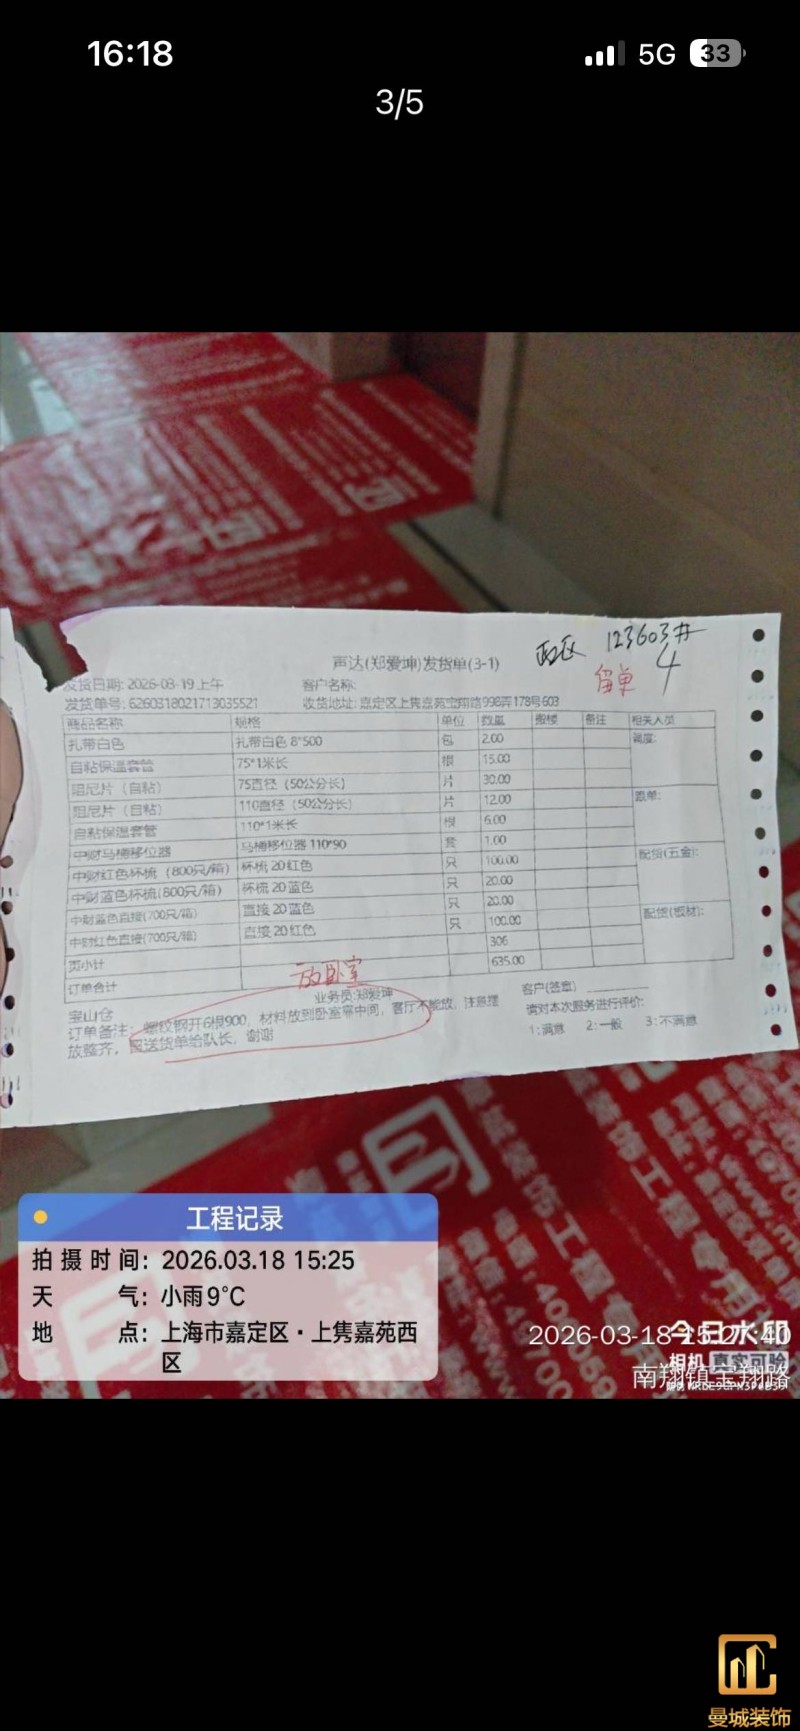 16:18
5G 33
3/5
西区 123603#
留单 4
声达(郑爱坤)发货单(3-1)
发货日期: 2026-03-19 上午 客户名称:
发货单号: 6260318021713035521 收货地址: 嘉定区上隽嘉苑宝翔路998弄178号603
商品名称 规格 单位 数量 搬楼 备注 相关人员
扎带白色 扎带白色 8*500 包 2.00 调度:
自粘保温套管 75*1米长 根 15.00
阻尼片（自粘） 75直径（50公分长） 片 30.00
阻尼片（自粘） 110直径（50公分长） 片 12.00 跟单:
自粘保温套管 110*1米长 根 6.00
中财马桶移位器 马桶移位器 110*90 套 1.00
中财红色杯梳（800只/箱） 杯梳 20红色 只 100.00 配货(五金):
中财蓝色杯梳(800只/箱) 杯梳 20蓝色 只 20.00
中财蓝色直接(700只/箱) 直接 20蓝色 只 20.00
中财红色直接(700只/箱) 直接 20红色 只 100.00 配货(板材):
页小计 306
订单合计 635.00
放卧室
宝山仓 业务员:郑爱坤 客户(签章)
订单备注: 螺纹钢开6根900, 材料放到卧室靠中间, 客厅不能放, 注意摆 请对本次服务进行评价:
放整齐, 送货单给队长, 谢谢 1:满意 2:一般 3:不满意
工程记录
拍摄时间: 2026.03.18 15:25
天气: 小雨9°C
地点: 上海市嘉定区·上隽嘉苑西
区
今日水印
相机 真实可验
2026-03-18 15:27:40
南翔镇宝翔路
曼城装饰